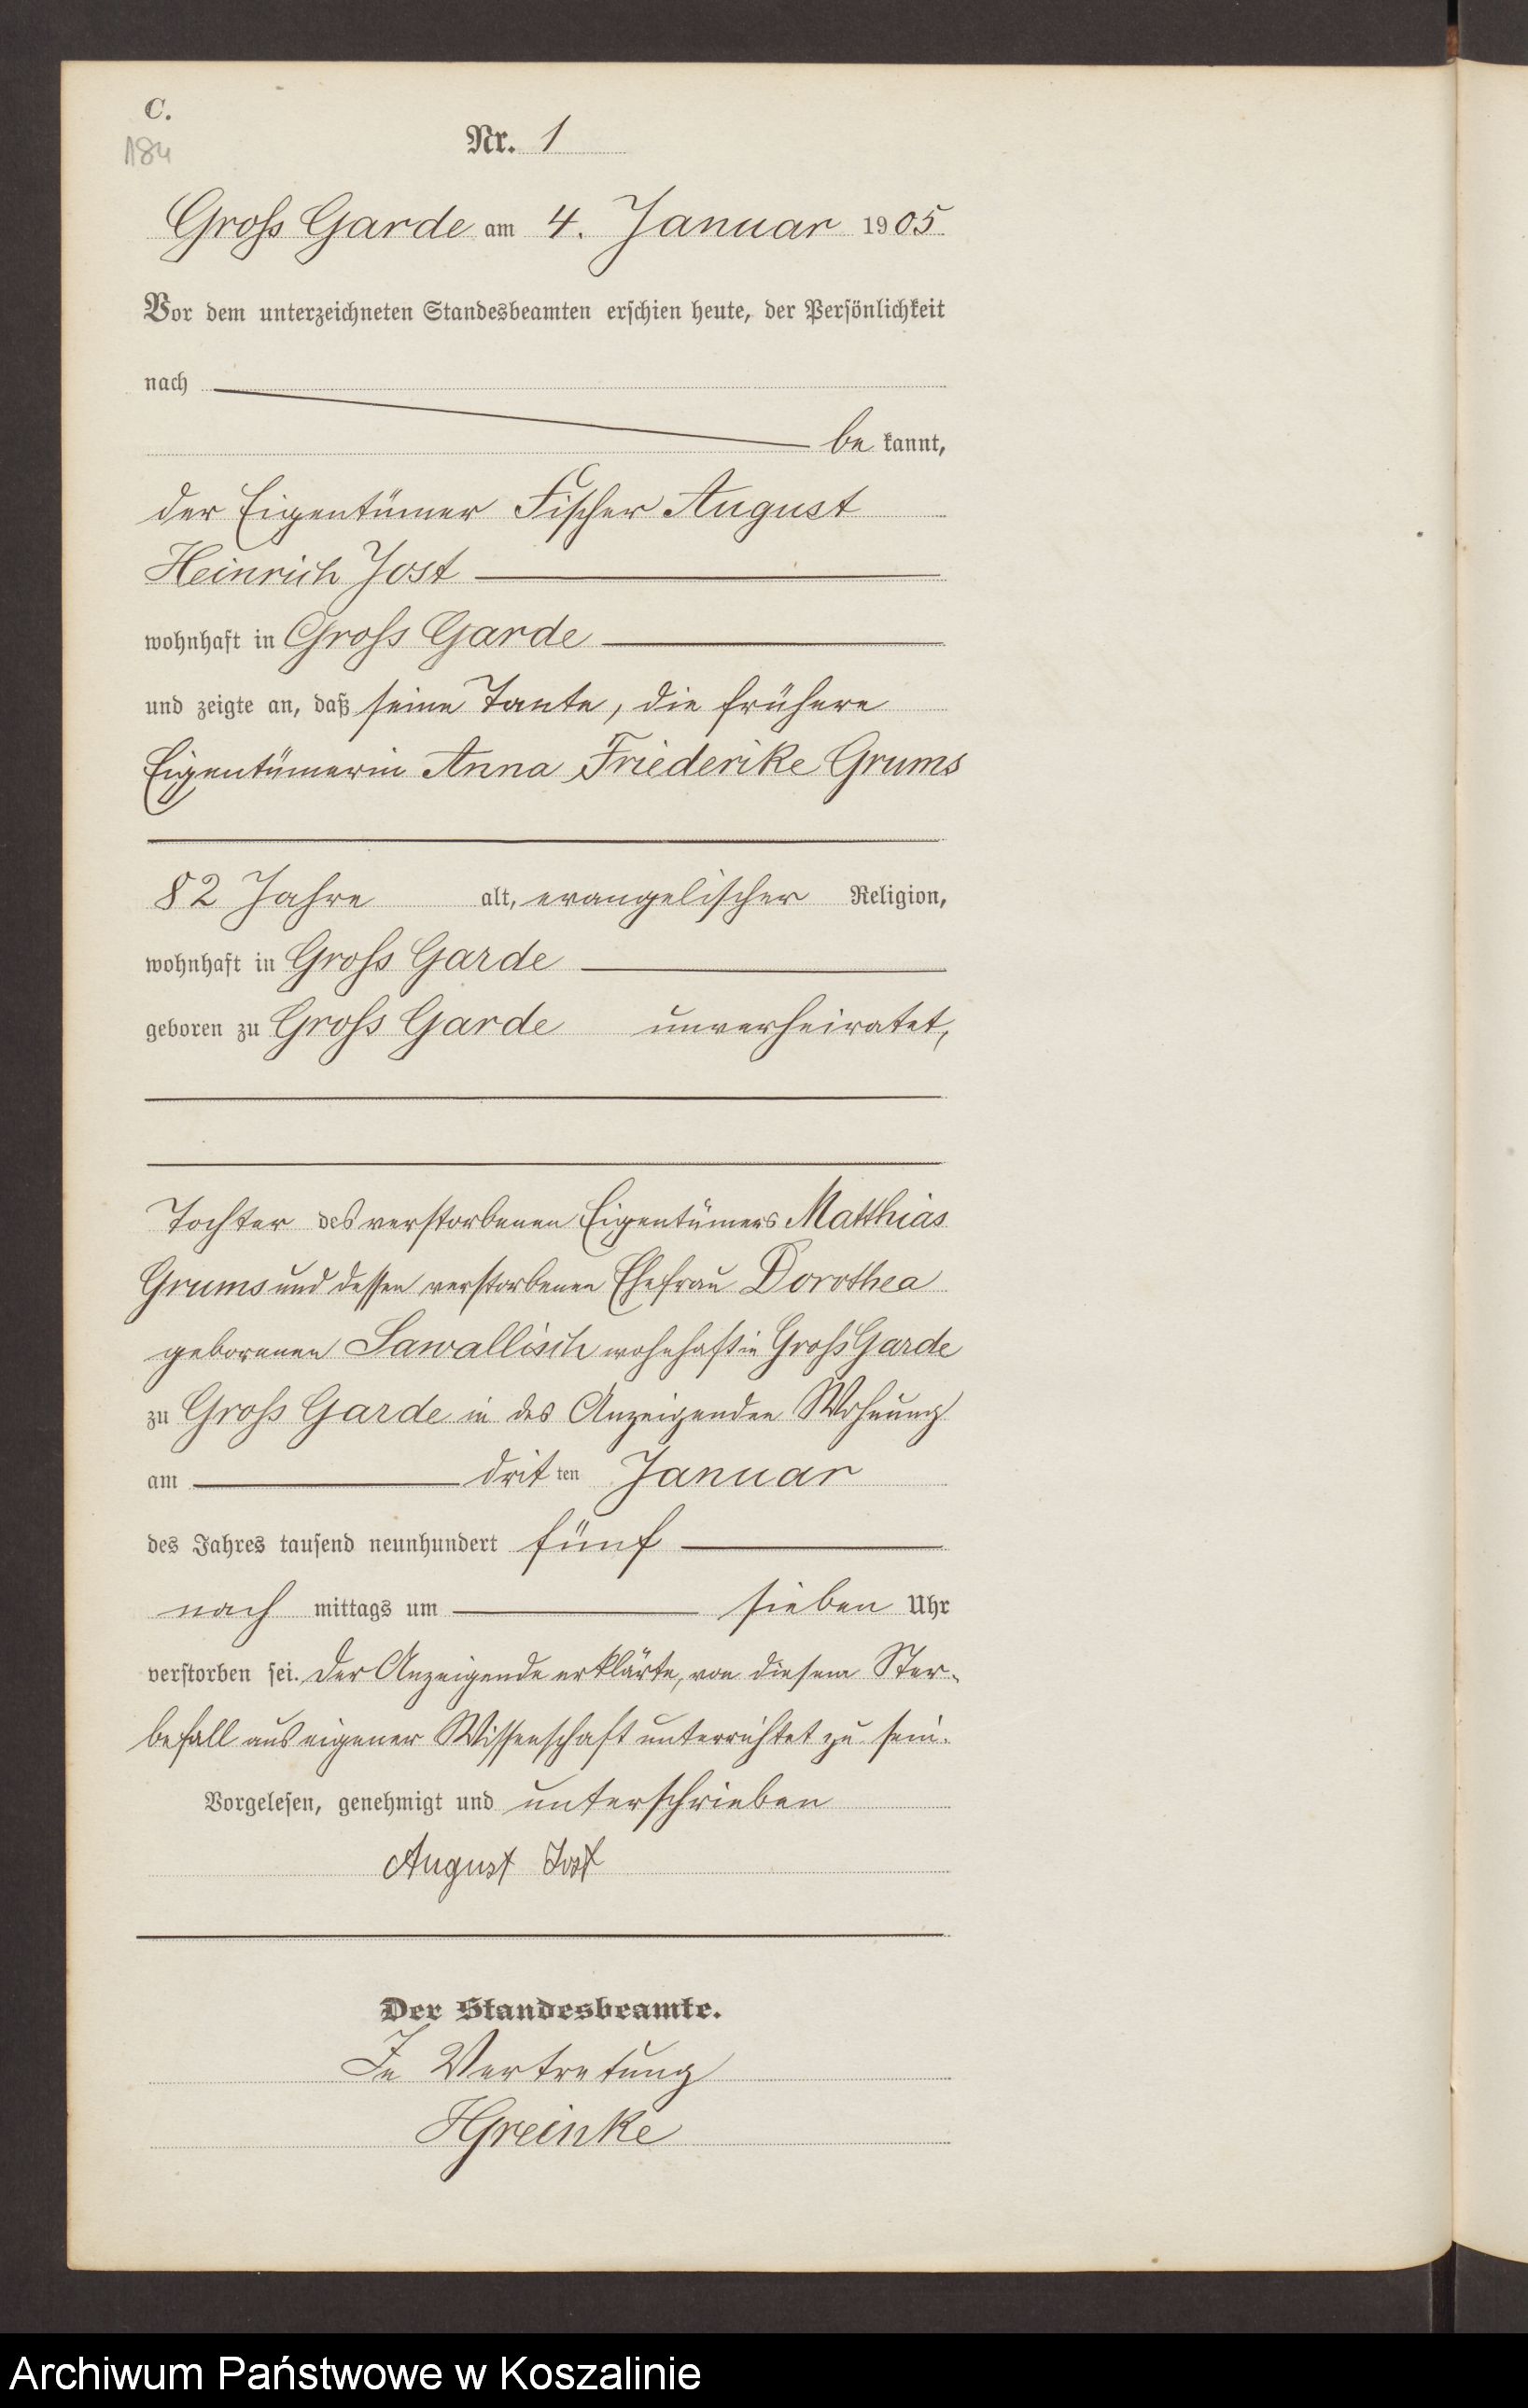 C.
184
Nr. 1
Gross Garde am 4. Januar 1905
Vor dem unterzeichneten Standesbeamten erschien heute, der Persönlichkeit
nach
be kannt,
der Eigentümer Fischer August
Heinrich Jost
wohnhaft in Gross Garde
und zeigte an, daß seine Tante, die frühere
Eigentümerin Anna Friederike Grums
82 Jahre alt, evangelischer Religion,
wohnhaft in Gross Garde
geboren zu Gross Garde unverheiratet,
Tochter des verstorbenen Eigentümers Matthias
Grums und dessen verstorbenen Ehefrau Dorothea
geborenen Sawallisch wohnhaft in Gross Garde
zu Gross Garde in des Anzeigenden Wohnung
am dritten Januar
des Jahres tausend neunhundert fünf
nach mittags um sieben Uhr
verstorben sei. Der Anzeigende erklärte, von diesem Ster-
befall aus eigener Wissenschaft unterrichtet zu sein.
Vorgelesen, genehmigt und unterschrieben
August Jost
Der Standesbeamte.
In Vertretung
HGreinke
Archiwum Państwowe w Koszalinie